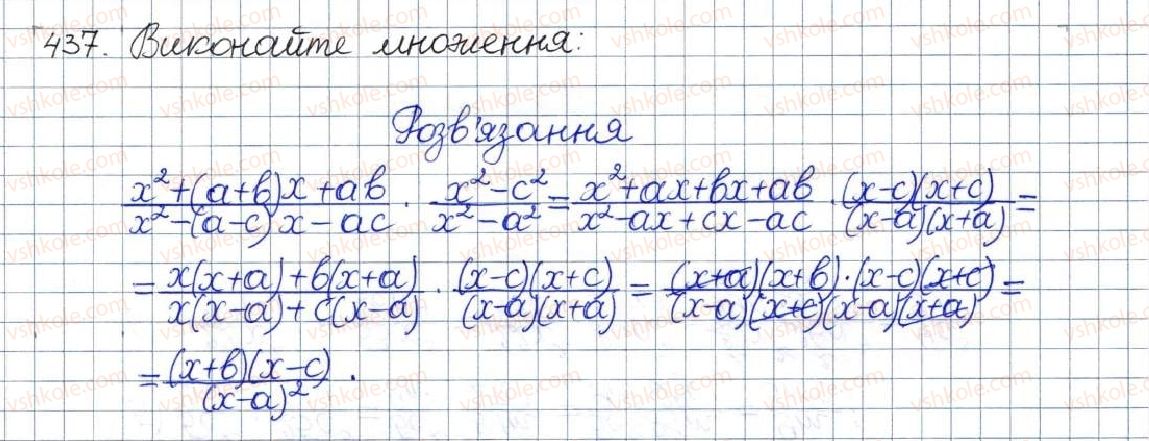 437. Виконайте множення:
Розв'язання
(x²+(a+b)x+ab)/(x²-(a-c)x-ac) · (x²-c²)/(x²-a²) = (x²+ax+bx+ab)/(x²-ax+cx-ac) · ((x-c)(x+c))/((x-a)(x+a)) =
= (x(x+a)+b(x+a))/(x(x-a)+c(x-a)) · ((x-c)(x+c))/((x-a)(x+a)) = ((x+a)(x+b)·(x-c)(x+c))/((x-a)(x+c)(x-a)(x+a)) =
= ((x+b)(x-c))/((x-a)²).
vshkole.com